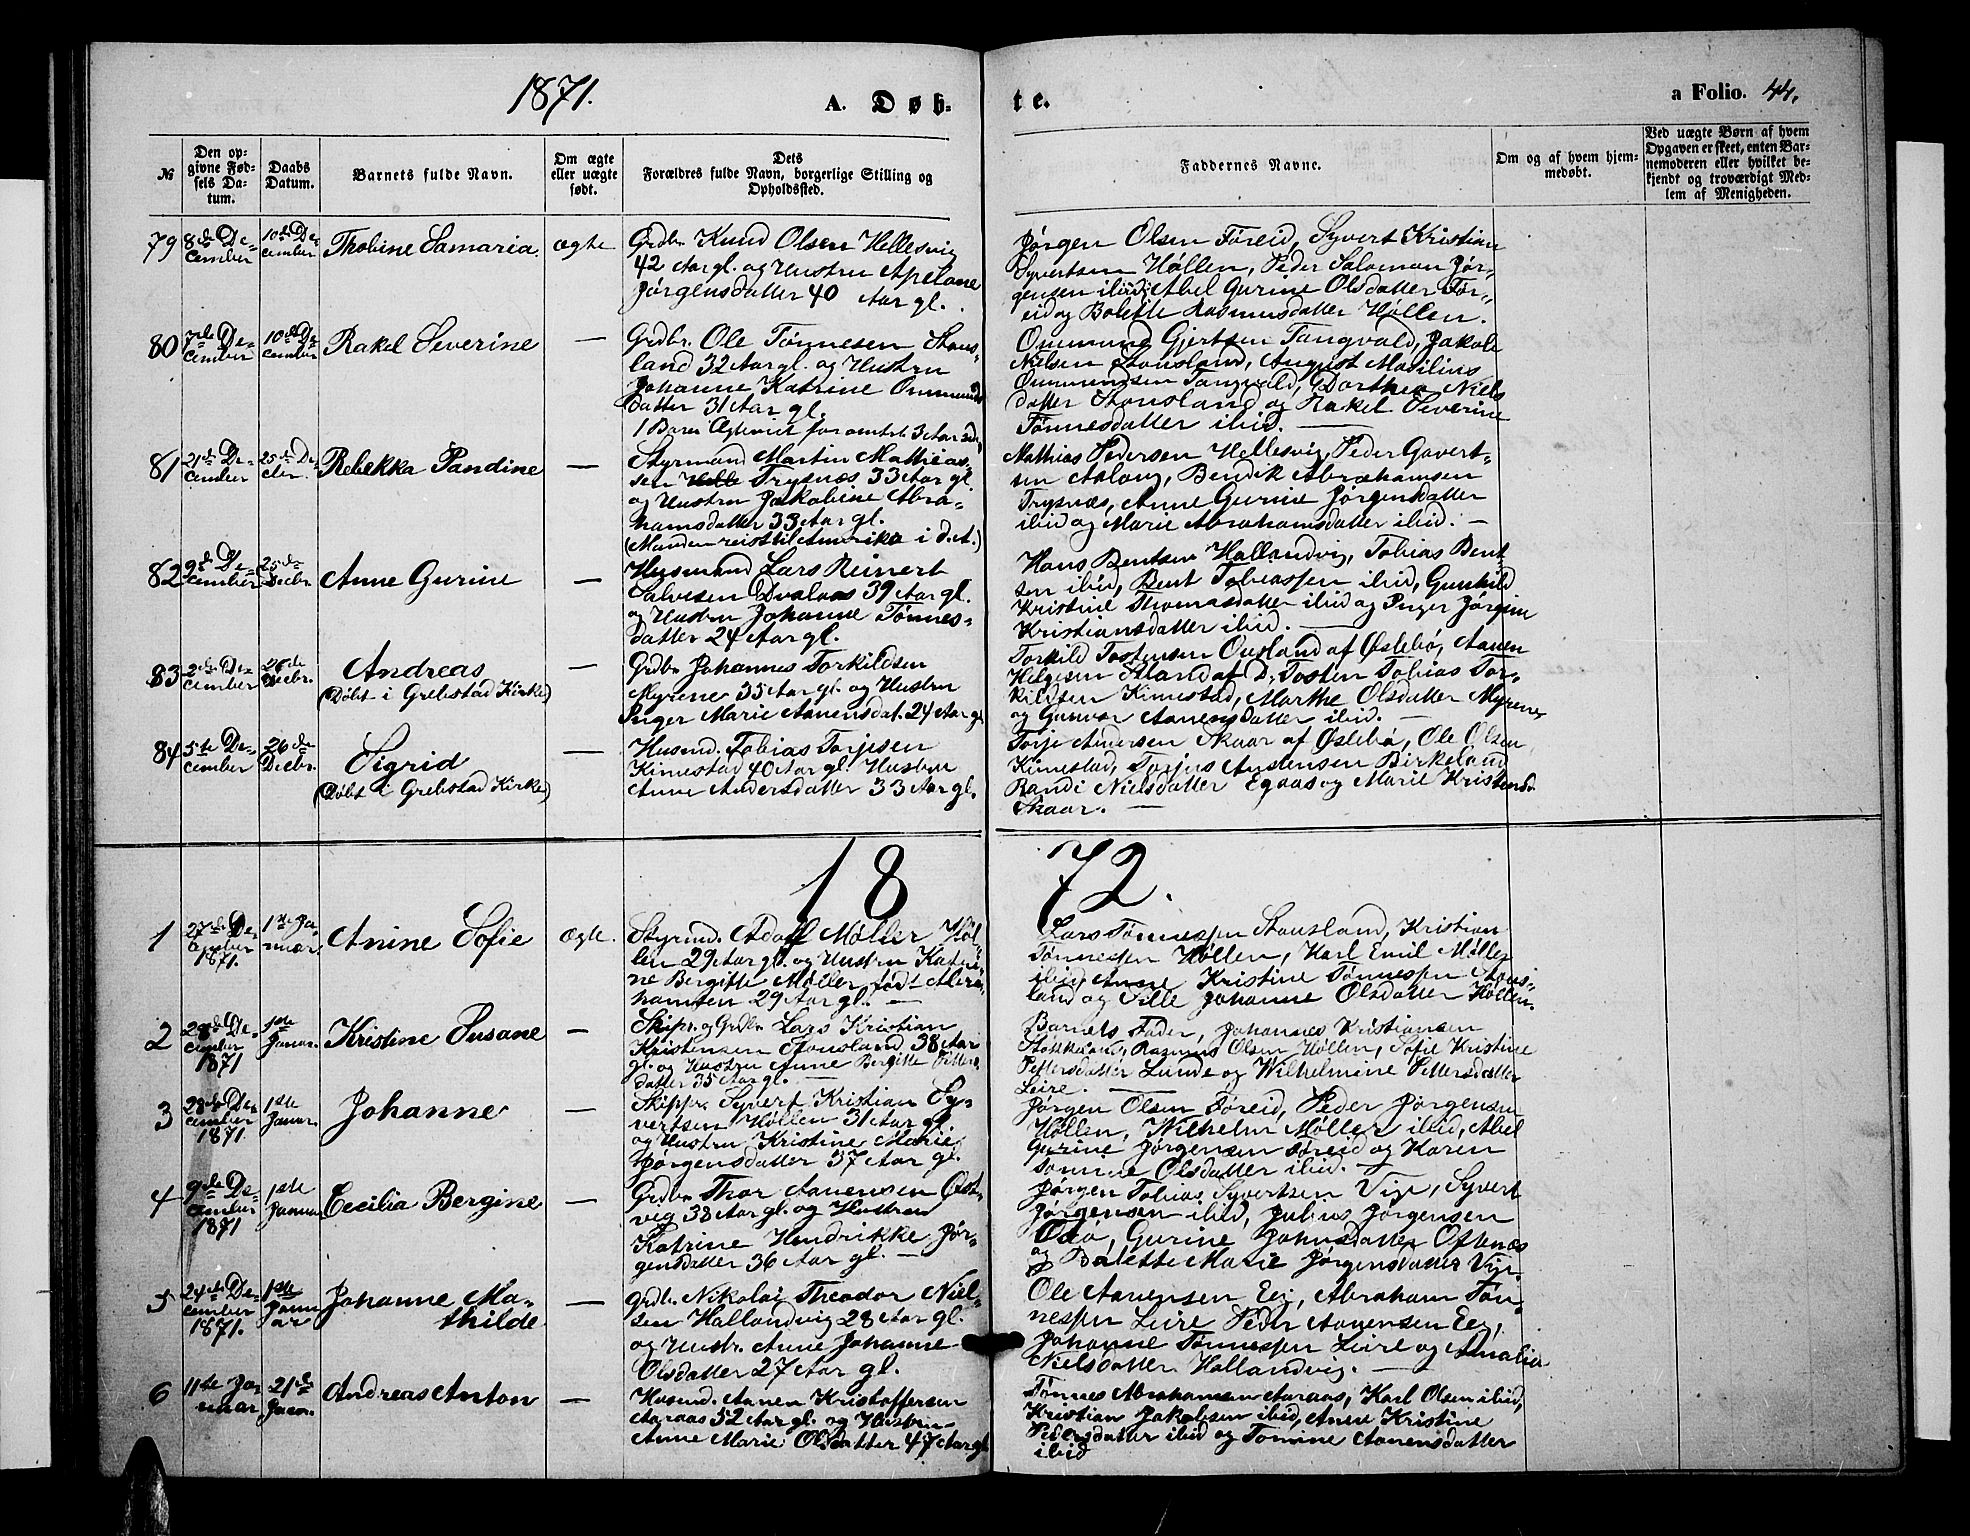 1871.
A. Døb-
te.
a Folio. 44.
№
Den op-
givne Fød-
sels Da-
tum.
Daabs
Datum.
Barnets fulde Navn.
Om ægte
eller uægte
født.
Dets
Forældres fulde Navn, borgerlige Stilling og
Opholdssted.
Faddernes Navne.
Om og af hvem hjem-
medøbt.
Ved uægte Børn af hvem
Opgaven er skeet, enten Bar-
nemoderen eller hvilket be-
kjendt og troværdigt Med-
lem af Menigheden.
79
8de De-
cember
10de De-
cember
Thobine Samaria.
ægte
Grdbr. Knud Olsen Hellesvig
42 Aar gl. og Hustru Apelone
Jørgensdatter 40 Aar gl.
Jørgen Olsen Føreid, Syvert Kristian
Syvertsen Høllen, Peder Salomon Jør-
gensen ibid, Abel Gurine Olsdatter Før-
eid og Bolette Rasmusdatter Høllen.
80
7de De-
cember
10de De-
cember
Rakel Severine
—
Grdbr. Ole Tønnesen Staus-
land 32 Aar gl. og Hustru
Johanne Katrine Ommunds
datter 31 Aar gl.
Ommund Gjertsen Tangvald, Jakob
Nielsen Stausland, August Matilius
Ommundsen Tangvald, Dorthea Niels
datter Stausland og Rakel Severine
Tønnesdatter ibid. —
81
21de De-
cember
25de De-
cbr.
Rebekka Pandine
—
1 Barn Ægteviet for omtr. 3 Aar sd.
Styrmand Martin Mathias-
sen Trysnæs 33 Aar gl.
og Hustru Jakobine Abra-
hamsdatter 33 Aar gl.
(Manden reist til Amerika i d. A.)
Mathias Pedersen Hellesvig, Peder Govert-
sen Aslaug, Bendik Abrahamsen
Trysnæs, Anne Gurine Jørgensdatter
ibid og Marie Abrahamsdatter ibid. —
82
9de De-
cember
25de
Decbr.
Anne Gurine
—
Husmand Lars Reinert
Salvesen Dvalaas 39 Aar gl.
og Hustru Johanne Tønnes-
datter 24 Aar gl.
Hans Bentsen Hallandvig, Tobias Bent
sen ibid, Bent Tobiassen ibid, Gunhild
Kristine Thomasdatter ibid og Inger Jørgine
Kristiansdatter ibid. —
83
2de De-
cember
26de
Decbr.
Andreas
(Døbt i Grebstad Kirke)
—
Grdbr Johannes Torkildsen
Myrene 35 Aar gl. og Hustru
Inger Marie Aanensdat. 24 Aar gl
Torkild Tostensen Ousland af Øslebø, Aanen
Helgesen Aland af D., Tosten Tobias Tor-
kildsen Kimestad, Marthe Olsdatter Myrene
og Gunvor Aanensdatter ibid. —
84
5te De-
cember
26de
Decbr.
Sigrid
(Døbt i Grebstad Kirke)
—
Husmd. Tobias Torjesen
Kimestad 40 Aar gl. Hustru
Anne Andersdatter 33 Aar gl.
Torje Andersen Skaar af Øslebø, Ole Olsen
Kimestad, Torjus Birkeland
Randi Nielsdatter Egaas og Marie Kristensd.
Skaar. —
18 72.
1
27de De-
cember
1871.
1ste Ja-
nuar.
Anine Sofie
ægte.
Styrmd. Adolf Møller Høl-
len 29 Aar gl. og Hustru Katri-
ne Bergitte Møller født Abra-
hamsen 29 Aar gl. —
Lars Tønnessen Stausland, Kristian
Tønnessen Høllen, Karl Emil Møller
ibid, Anne Kristine Tønnessen Staus-
land og Sille Johanne Olsdatter Høllen.
2
De-
cember
1871
1ste
Januar.
Kristine Susane
—
Skipr. og Grdbr. Lars Kristian
Kristensen Stausland 38 Aar
gl. og Hustru Anne Bergitte Petters
datter 35 Aar gl. —
Barnets Fader, Johannes Kristiansen
Stokkeland, Rasmus Olsen Høllen, Sofie Kristine
Pettersdatter Lunde og Wilhelmine Pettersdatter
Leire. —
3
28de De-
cember
1871.
1ste
Januar.
Johanne
—
Skippr. Syvert Kristian Sy-
vertsen Høllen 31 Aar gl.
og Hustru Kristine Marie
Jørgensdatter 37 Aar gl.
Jørgen Olsen Føreid, Peder Jørgensen
Høllen, Wilhelm Møller ibid, Abel
Gurine Jørgensen Føreid og Karen
Tomine Olsdatter ibid. —
4
9de De-
cember
1871
1ste
Januar
Cecilia Bergine
—
Grdbr. Thor Aanensen
vig 38 Aar gl. og Hustru
Katrine Hendrikke Jør-
gensdatter 36 Aar gl. —
Jørgen Tobias Syvertsen Vige, Syvert
Jørgensen ibid, Julius Jørgensen
Gurine Oftenæs
og Bolette Marie Jørgensdatter Vige.
5
24de De-
cember
1871.
1ste
Janu
ar
Johanne Ma-
thilde
—
Grdbr. Nikolai Theodor Niel-
sen Hallandvig 28 Aar gl.
og Hustr. Anne Johanne
Olsdatter 27 Aar gl.
Ole Aanensen Eeg, Abraham Tøn-
nessen Leire, Peder Aanensen Eeg,
Johanne Tønnessen Leire og Amalie
Nielsdatter Hallandvig. —
6
11te Ja-
nuar
21de
Januar.
Andreas Anton
—
Husmd. Aanen Kristoffersen
Aaraas 52 Aar gl. og Hustru
Anne Marie Olsdatter 47 Aar gl
Tønnes Abrahamsen Aaraas, Karl Olsen ibid,
Kristian Jakobsen ibid, Anne Kristine
Pedersdatter ibid og Tomine Aanensdatter
ibid